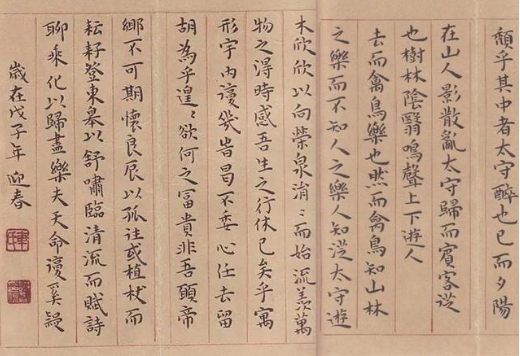 頹乎其中者太守醉也已而夕陽
在山人影散亂太守歸而賓客從
也樹林陰翳鳴聲上下遊人
去而禽鳥樂也然而禽鳥知山林
之樂而不知人之樂人知從太守遊
木欣欣以向榮泉涓〻而始流羨萬
物之得時感吾生之行休已矣乎寓
形宇內復幾旹曷不委心任去留
胡為乎遑〻欲何之富貴非吾願帝
鄉不可期懷良辰以孤往或植杖而
耘耔登東皋以舒嘯臨清流而賦詩
聊乘化以歸盡樂夫天命復奚疑
歲在戊子年 迎春